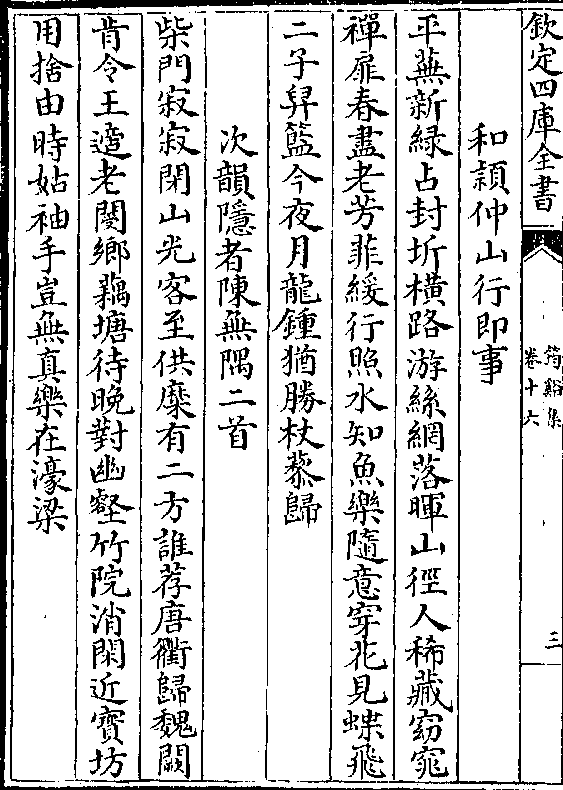 欽定四庫全書
筠谿集
卷十六
三
和潁仲山行即事
平蕪新綠占封圻橫路游絲網落暉山徑人稀藏窈窕
禪扉春盡老芳菲緩行照水知魚樂隨意穿花見蝶飛
二子舁籃今夜月龍鍾猶勝杖藜歸
次韻隱者陳無隅二首
柴門寂寂閉山光客至供糜有二方誰荐唐衢歸魏闕
肯令王適老閿鄉藕塘待晚對幽壑竹院消閑近寶坊
用捨由時姑袖手豈無真樂在濠梁